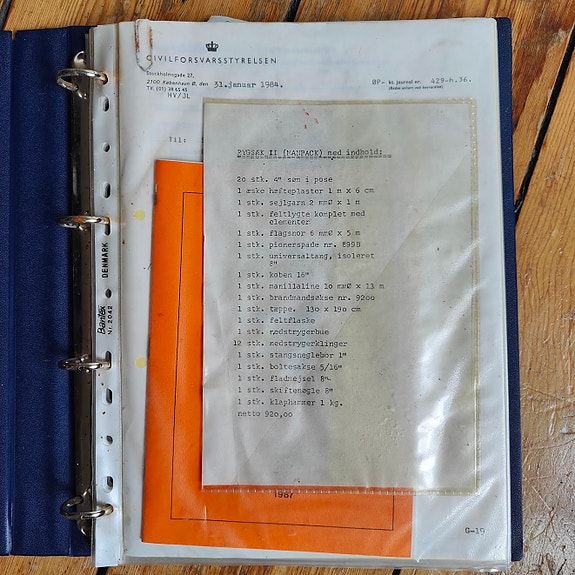 CIVILFORSVARSSTYRELSEN
Stockholmsgade 27,
2100 København Ø, den 31.januar 1984.
Tlf. (01) 38 65 45
HV/JL
ØP- kt. journal nr. 429-h.36.
(Bedes anført ved besvarelse)
Til:
RYGSÆK II (MANPACK) med indhold:
20 stk. 4" søm i pose
1 æske hæfteplaster 1 m x 6 cm
1 stk. sejlgarn 2 mmØ x 1 m
1 stk. feltlygte komplet med
elementer
1 stk. flagsnor 6 mmØ x 5 m
1 stk. pionerspade nr. 899B
1 stk. universaltang, isoleret
8"
1 stk. koben 16"
1 stk. manillaline 10 mmØ x 13 m
1 stk. brandmandsøkse nr. 9200
1 stk. tæppe. 130 x 190 cm
1 stk. feltflaske
1 stk. nedstrygerbue
12 stk. nedstrygerklinger
1 stk. stangsneglebor 1"
1 stk. boltesakse 5/16"
1 stk. fladmejsel 8"
1 stk. skiftenøgle 8"
1 stk. klaphammer 1 kg.
netto 920,00
1987
G-19
DENMARK
Bantex
Nr. 2042